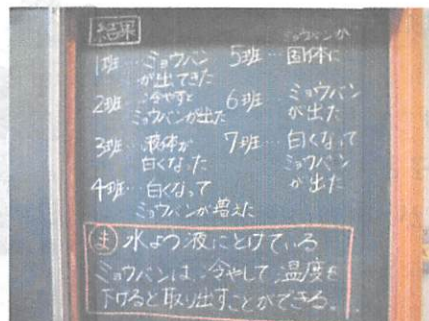 結果
1班…ミョウバン
が出てきた
2班…冷やすと
ミョウバンが出た
3班…液体が
白くなった
4班…白くなって
ミョウバンが増えた
ミョウバンが
5班…固体に
6班…ミョウバン
が出た
7班…白くなって
ミョウバン
が出た
ま 水よう液にとけている
ミョウバンは、冷やして温度を
下げると取り出すことができる。